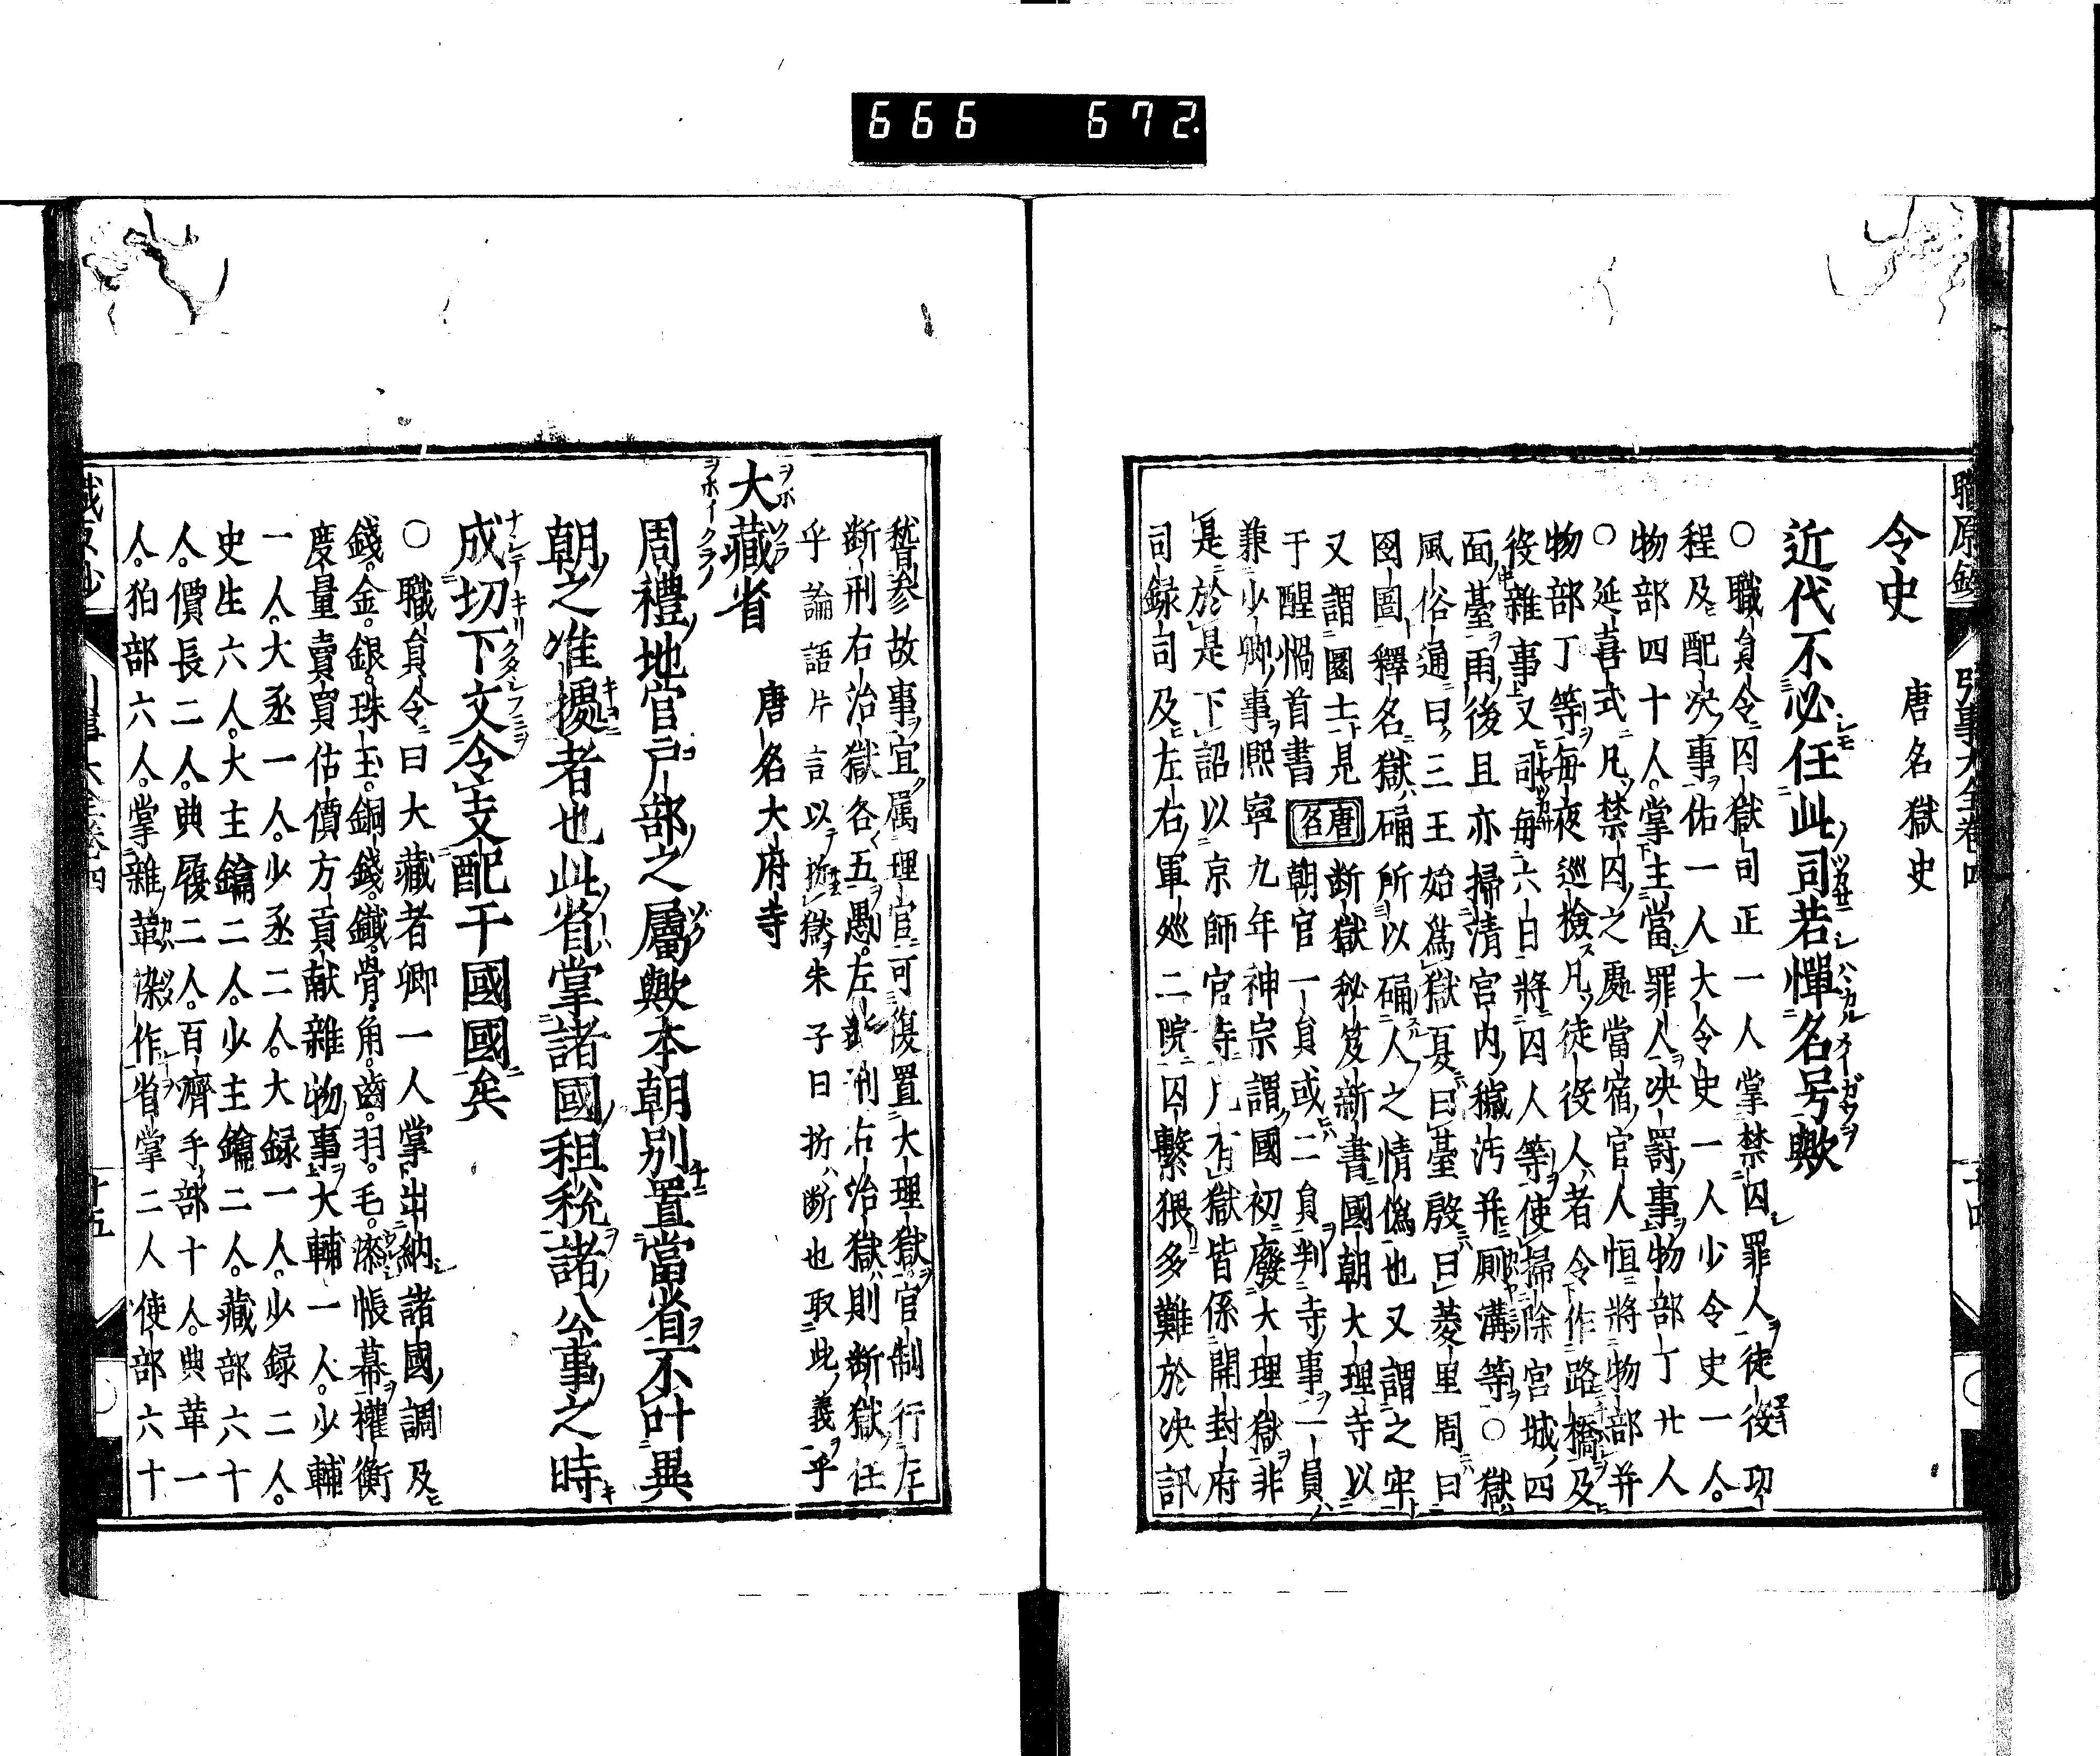 666 672
令史 唐名獄史
近代不必任此司若憚名号歟
○職員令曰囚獄司正一人掌禁囚罪人徒役功
程及配决事佑一人大令史一人少令史一人
物部四十人掌主當罪人决罰事物部丁廿人
○延喜式凡禁囚之處當宿官人恒將物部并
物部丁等毎夜巡撿凡徒役人者令作路橋及
役雜事又司毎六日將囚人等使掃除宮城四
面臺雨後且亦掃清宮内穢汚并厠溝等○獄
風俗通曰三王始為獄夏曰臺殷曰羑里周曰
囹圄釋名獄确所以确人之情偽也又謂之牢
又謂圜土見唐名断獄秘笈新書國朝大理寺以
于醒惱首書朝官一員或二員判寺事一員
兼少卿事熙寧九年神宗謂國初廢大理獄非
是於是下詔以京師官寺凡有獄皆係開封府
司録司及左右軍巡二院囚繫猥多難於决訊
稽参故事宜属理官可復置大理獄官制行左
断刑右治獄各五愚則左断刑右治獄則断獄任
乎論語片言以折獄朱子曰折断也取此義乎
大藏省 唐名大府寺
周禮地官戸部之屬歟本朝別置當省不叶異
朝之准擾者也此省掌諸國租税諸公事之時
成切下文令支配干國國矣
○職員令曰大藏者卿一人掌出納諸國調及
錢金銀珠玉銅錢鐵骨角齒羽毛漆帳幕權衡
度量賣買估價方貢献雜物事大輔一人少輔
一人大丞一人少丞二人大録一人少録二人
史生六人大主鑰二人少主鑰二人藏部六十
人價長二人典履二人百濟手部十人典革一
人狛部六人掌雜革染作省掌二人使部六十